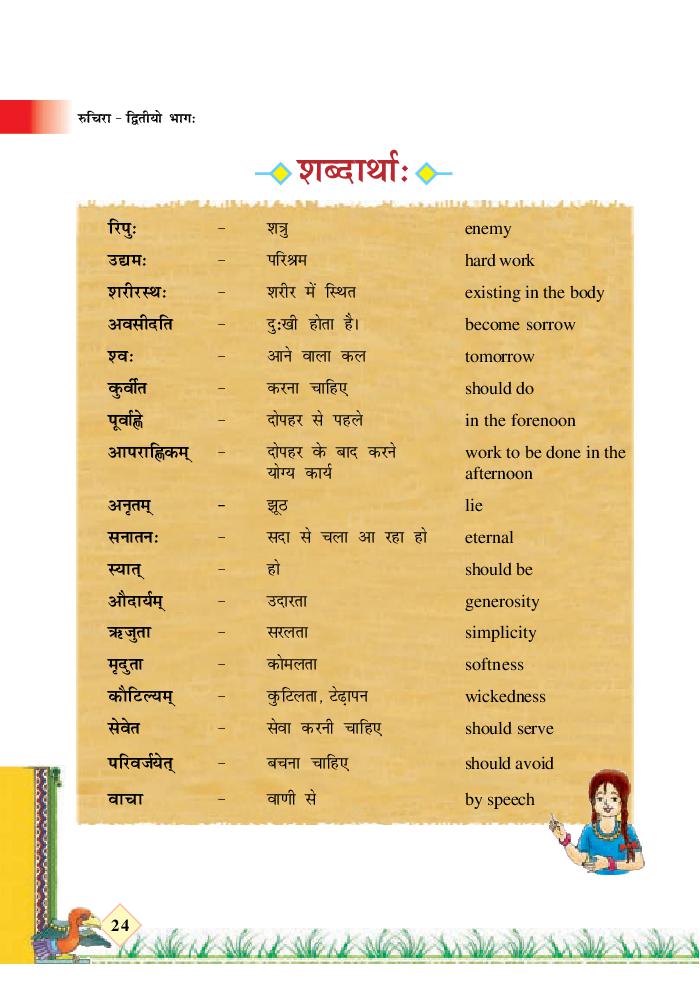 रुचिरा - द्वितीयो भागः
शब्दार्थाः
रिपुः - शत्रु enemy
उद्यमः - परिश्रम hard work
शरीरस्थः - शरीर में स्थित existing in the body
अवसीदति - दुःखी होता है। become sorrow
श्वः - आने वाला कल tomorrow
कुर्वीत - करना चाहिए should do
पूर्वाह्णे - दोपहर से पहले in the forenoon
आपराह्णिकम् - दोपहर के बाद करने work to be done in the
योग्य कार्य afternoon
अनृतम् - झूठ lie
सनातनः - सदा से चला आ रहा हो eternal
स्यात् - हो should be
औदार्यम् - उदारता generosity
ऋजुता - सरलता simplicity
मृदुता - कोमलता softness
कौटिल्यम् - कुटिलता, टेढ़ापन wickedness
सेवेत - सेवा करनी चाहिए should serve
परिवर्जयेत् - बचना चाहिए should avoid
वाचा - वाणी से by speech
24